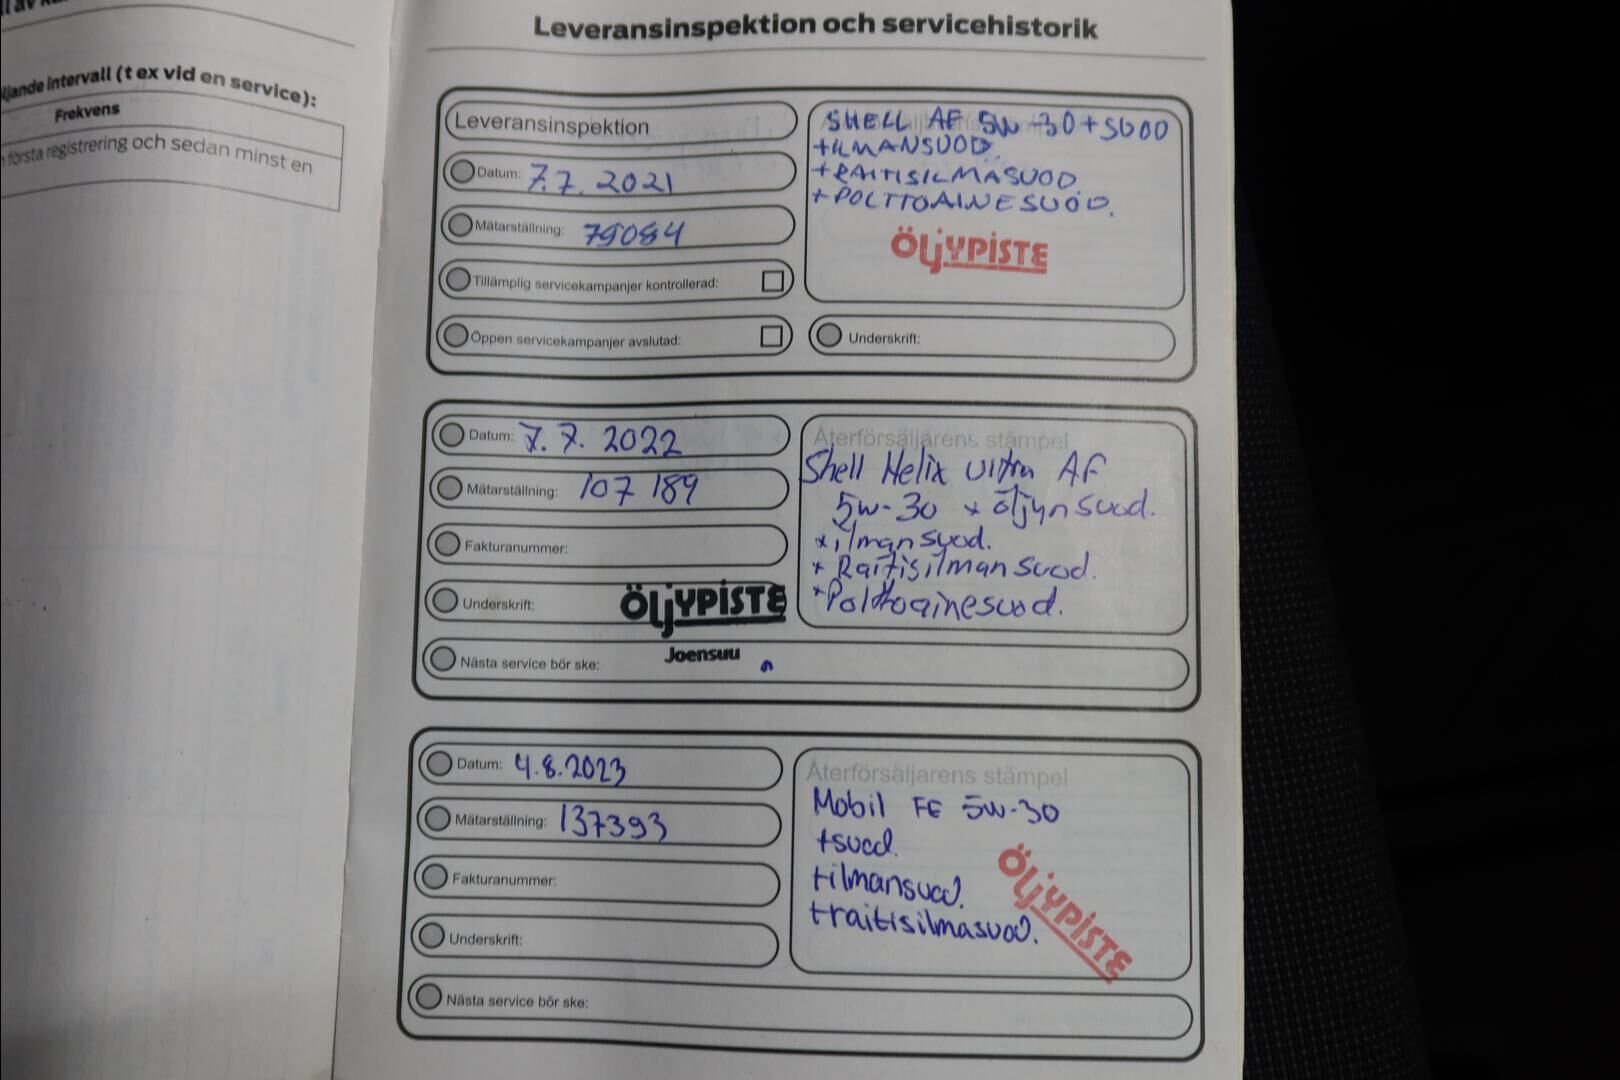 ljande intervall (t ex vid en service):
Frekvens
första registrering och sedan minst en
Leveransinspektion och servicehistorik
Leveransinspektion
Datum: 7.7. 2021
Mätarställning: 79084
Tillämplig servicekampanjer kontrollerad:
Öppen servicekampanjer avslutad:
SHELL AF 5W-30+SUOD
+ILMANSUOD.
+RAITISILMASUOD.
+POLTTOAINESUOD.
ÖLJYPISTE
Underskrift:
Datum: 7.7. 2022
Mätarställning: 107 189
Fakturanummer:
Underskrift:
ÖLJYPISTE
Joensuu
Nästa service bör ske:
Återförsäljarens stämpel
Shell Helix Ultra AF
5w-30 x öljynsuod.
x ilmansuod.
x Raitisilmansuod.
x Polttoainesuod.
Datum: 4.8.2023
Mätarställning: 137393
Fakturanummer:
Underskrift:
Nästa service bör ske:
Återförsäljarens stämpel
Mobil FE 5W-30
+suod.
+ilmansuod.
+raitisilmasuod.
ÖLJYPISTE